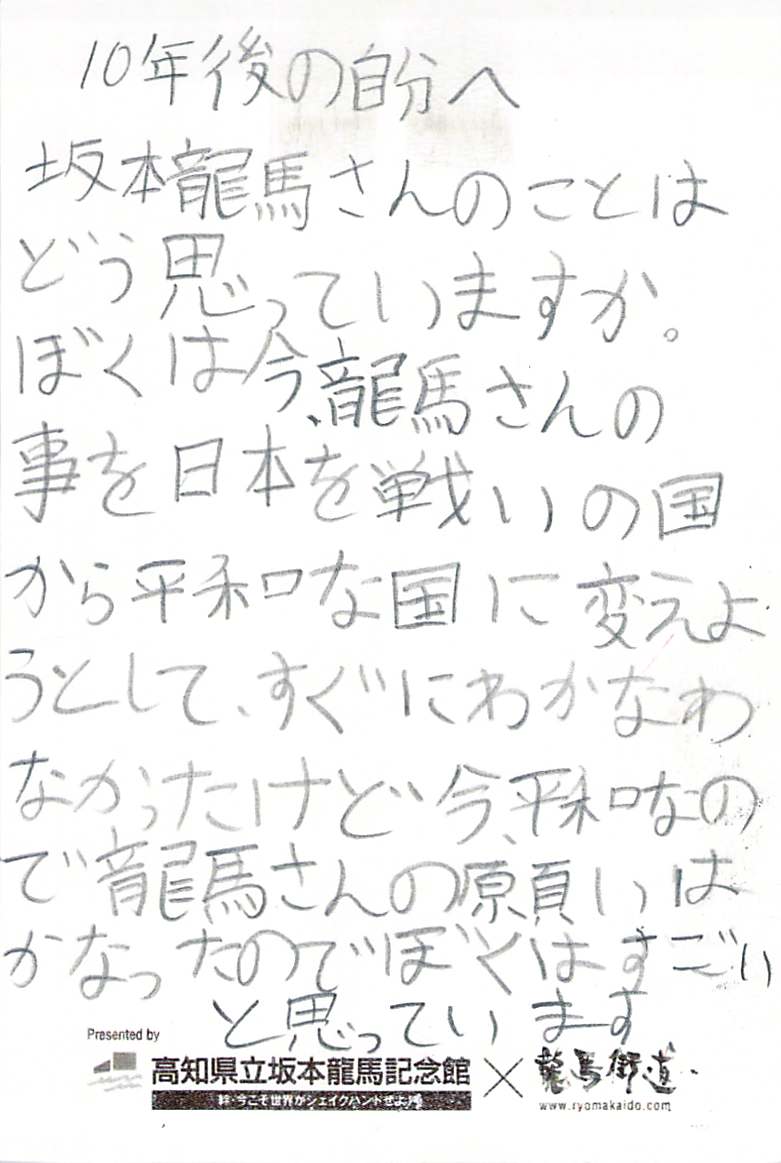 10年後の自分へ
坂本龍馬さんのことは
どう思っていますか。
ぼくは今、龍馬さんの
事を日本を戦いの国
から平和な国に変えよ
うとして、すぐにわかなわ
なかったけど今、平和なの
で龍馬さんの願いは
かなったのでぼくはすごい
と思っています
Presented by
高知県立坂本龍馬記念館×龍馬街道
絆・今こそ世界がシェイクハンドぜよ!
www.ryomakaido.com